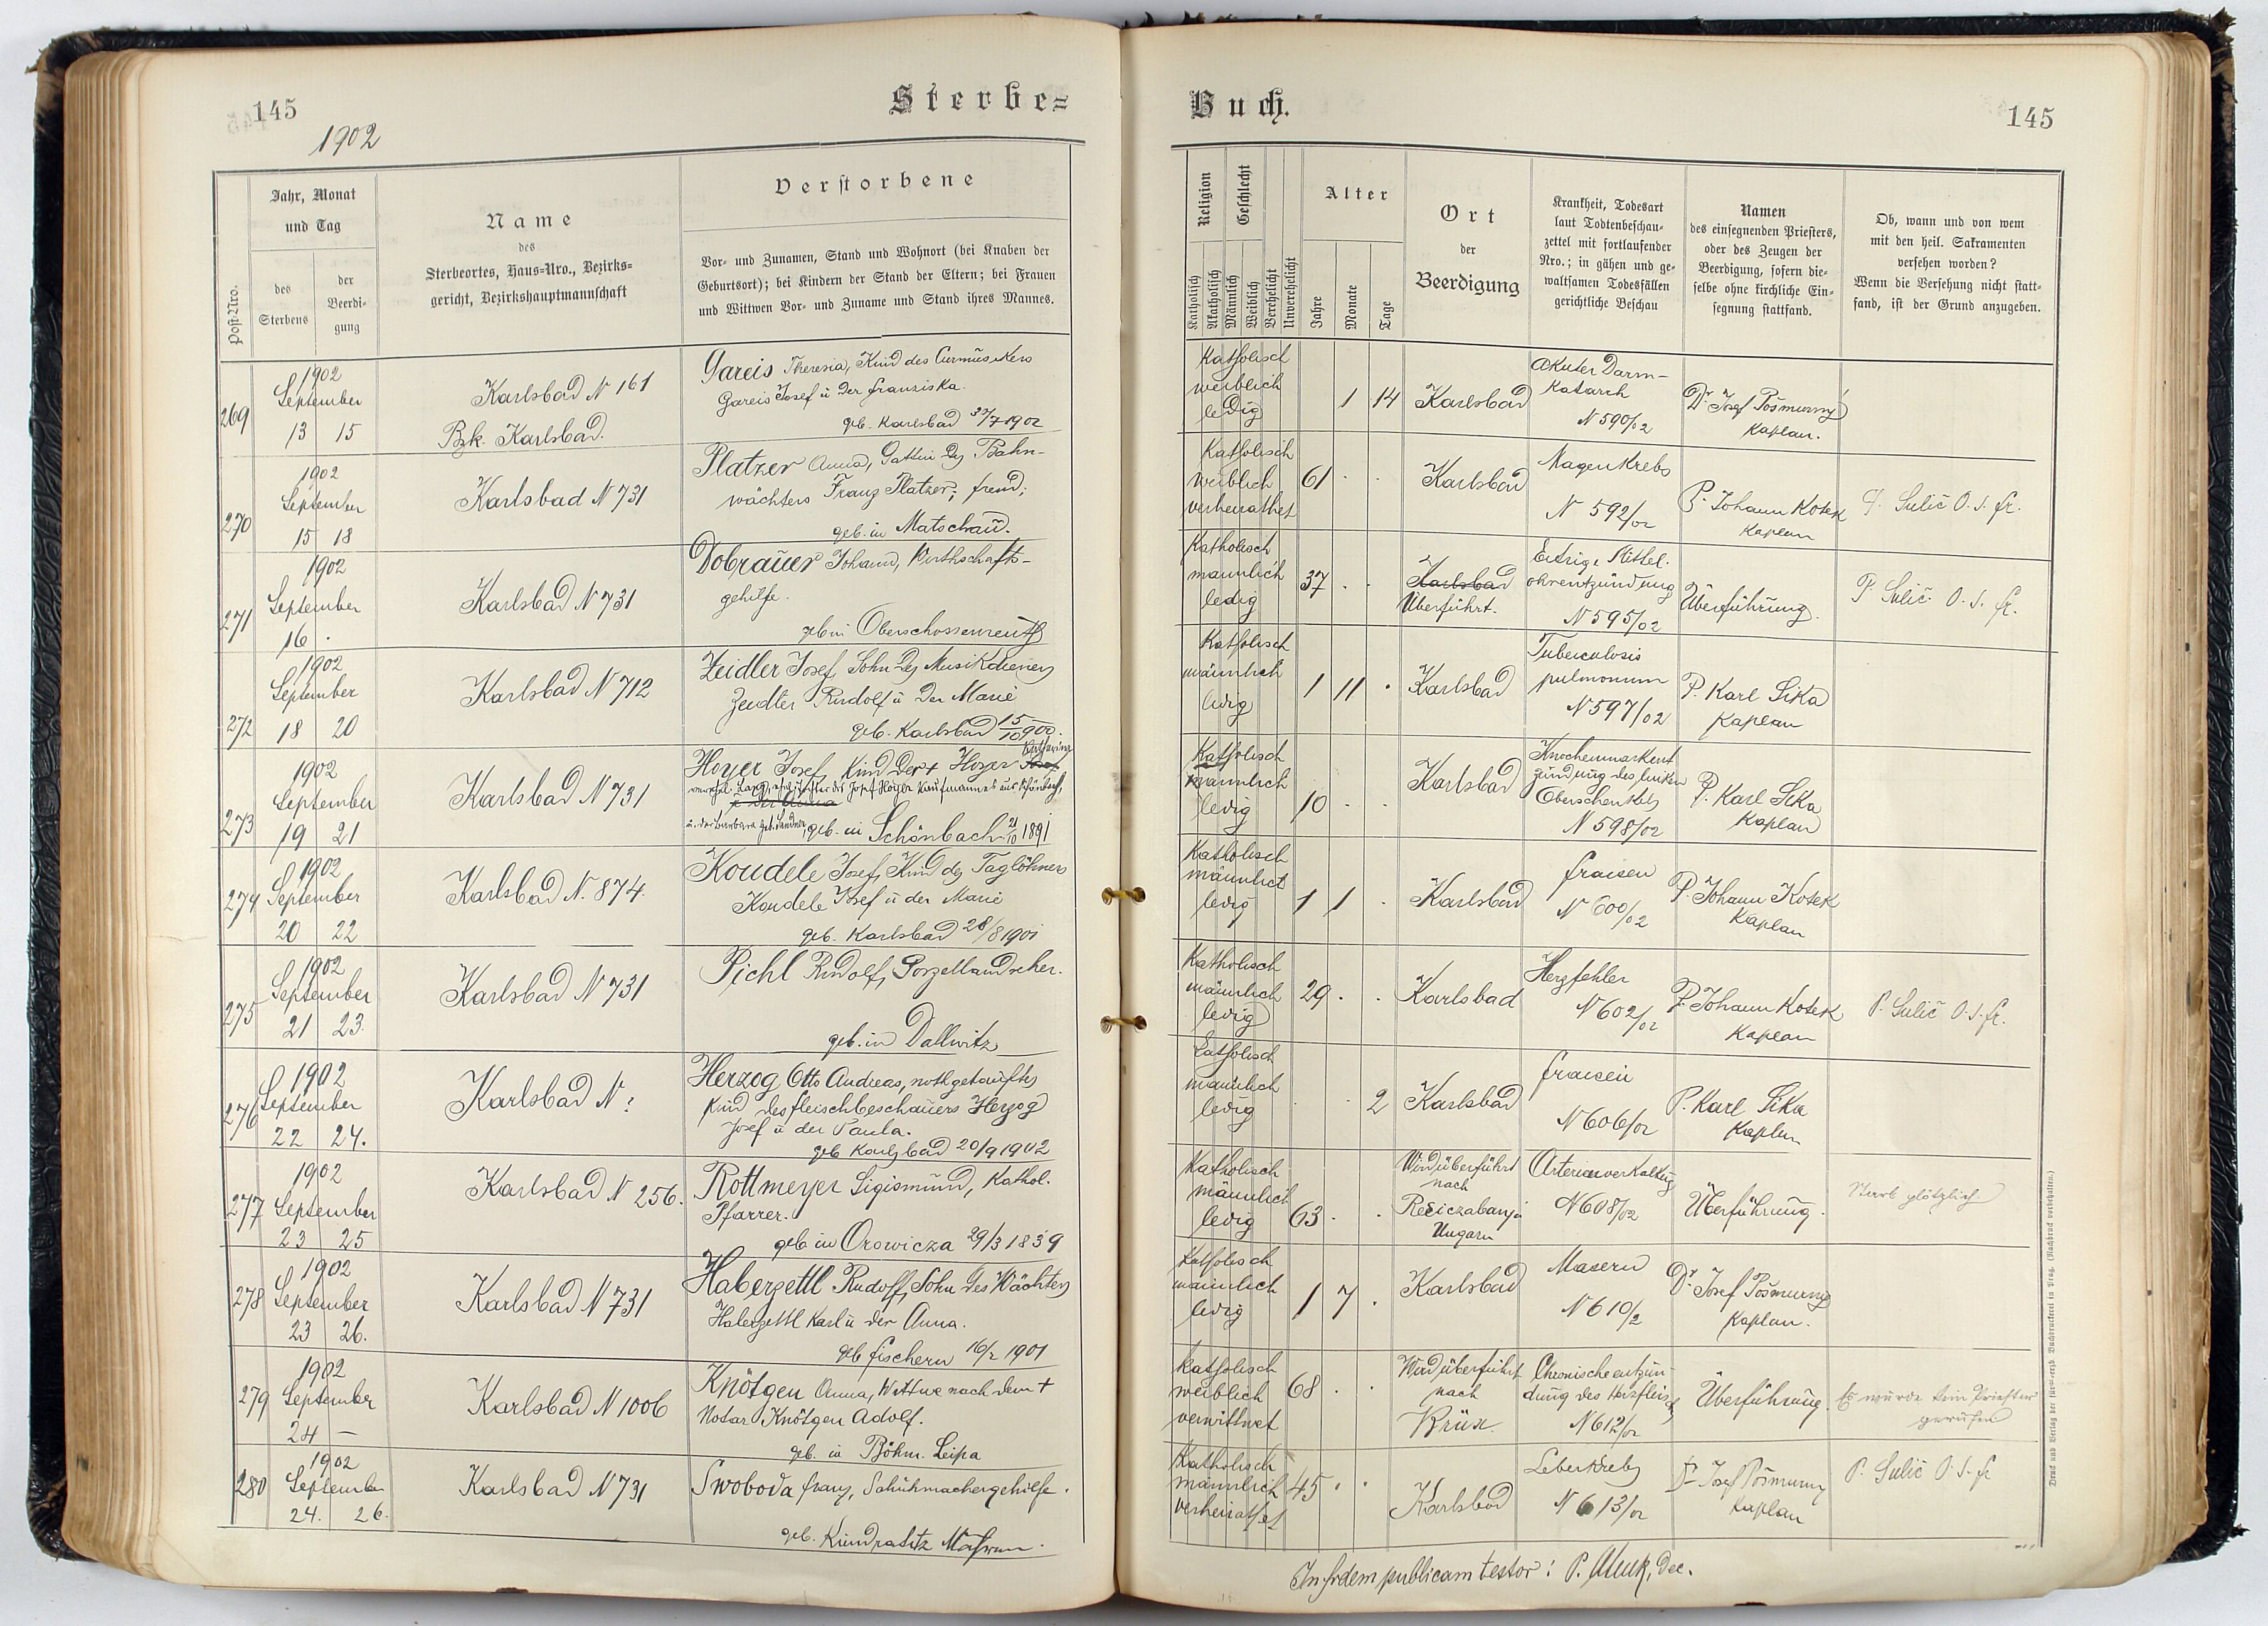 145
1902
Sterbe=
Post-Nro.
Jahr, Monat
und Tag
des
Sterbens
der
Beerdi-
gung
Name
des
Sterbeortes, Haus-Nro., Bezirks-
gericht, Bezirkshauptmannschaft
Verstorbene
Vor- und Zunamen, Stand und Wohnort (bei Knaben der
Geburtsort); bei Kindern der Stand der Eltern; bei Frauen
und Wittwen Vor- und Zuname und Stand ihres Mannes.
269
1902
September
13 15
Karlsbad N 161
Bzk. Karlsbad.
Gareis Theresia, Kind des Curmusikers
Gareis Josef u der Franziska.
geb. Karlsbad 1902
270
1902
September
15 18
Karlsbad N 731
Platzer Anna, Gattin des Bahn-
wächters Franz Platzer;
geb. in Matschau.
271
1902
September
16 .
Karlsbad N 731
Dobrauer Johann, Wirthschafts-
gehilfe.
geb in Oberschossenreuth
272
1902
September
18 20
Karlsbad N 712
Zeidler Josef, Sohn des Musikdieners
Zeidler Rudolf u der Marie
geb. Karlsbad 15/10 900.
273
1902
September
19 21
Karlsbad N 731
Hoyer Josef, Kind der + Hoyer Katharina
u. der Barbara geb. Sandner, geb. in Schönbach 21/10 1891
274
1902
September
20 22
Karlsbad N. 874.
Koudele Josef, Kind des Taglöhners
Koudele Josef u der Marie
geb. Karlsbad 28/8 1901
275
1902
September
21 23.
Karlsbad N 731
Pichl Rudolf, Porzellandreher.
geb. in Dallwitz
276
1902
September
22 24.
Karlsbad N ?
Herzog Otto Andreas, nothgetauftes
Kind des Fleischbeschauers Herzog
Josef u der Paula.
geb Karlsbad 20/9 1902
277
1902
September
23 25
Karlsbad N 256.
Rottmeyer Sigismund, Kathol.
Pfarrer.
geb in Orowicza 29/3 1839
278
1902
September
23 26.
Karlsbad N 731
Haberzettl Rudolf, Sohn des Wächters
Haberzettl Karl u der Anna.
geb Fischern 16/2 1901
279
1902
September
24 –
Karlsbad N 1006
Knötgen Anna, Wittwe nach dem +
Notar Knötgen Adolf.
geb. in Böhm. Leipa
280
1902
September
24. 26.
Karlsbad N 731
Swoboda Franz, Schuhmachergehilfe.
geb. Kundratitz
Buch.
145
Religion
Katholisch
Akatholisch
Geschlecht
Männlich
Weiblich
Verehelicht
Unverehelicht
Alter
Jahre
Monate
Tage
Ort
der
Beerdigung
Krankheit, Todesart
laut Todtenbeschau-
zettel mit fortlaufender
Nro.; in gähen und ge-
waltsamen Todesfällen
gerichtliche Beschau
Namen
des einsegnenden Priesters,
oder des Zeugen der
Beerdigung, sofern die-
selbe ohne kirchliche Ein-
segnung stattfand.
Ob, wann und von wem
mit den heil. Sakramenten
versehen worden?
Wenn die Versehung nicht statt-
fand, ist der Grund anzugeben.
Katholisch
weiblich
ledig
1 14
Karlsbad
Akuter Darm-
Katarrh
N 590/02
Dr. Josef Pošmurný
Kaplan.
Katholisch
weiblich
verheirathet
61 . .
Karlsbad
Magenkrebs
N 592/02
P. Johann Kotek
Kaplan
P. Sulič O. S. fr.
Katholisch
männlich
ledig
37 . .
Karlsbad
Überführt.
Eitrige Mittel-
ohrentzündung
N 595/02
Überführung.
P. Sulič O. S. fr.
Katholisch
männlich
ledig
1 11 .
Karlsbad
Tuberculosis
pulmonum
N 597/02
P. Karl Sika
Kaplan
Katholisch
männlich
ledig
10 . .
Karlsbad
Knochenmarkent
zündung des linken
Oberschenkels
N 598/02
P. Karl Sika
Kaplan
Katholisch
männlich
ledig
1 1 .
Karlsbad
Fraisen
N 600/02
P. Johann Kotek
Kaplan
Katholisch
männlich
ledig
29 . .
Karlsbad
Herzfehler
N 602/02
P. Johann Kotek
Kaplan
P. Sulič O. S. fr.
Katholisch
männlich
ledig
. . 2
Karlsbad
Fraisen
N 606/02
P. Karl Sika
Kaplan
Katholisch
männlich
ledig
63 . .
Wird überführt
nach
Resiczabanya
Ungarn
Arterienverkalkung
N 608/02
Überführung.
Starb plötzlich.
Katholisch
männlich
ledig
1 7 .
Karlsbad
Masern
N 610/2
Dr. Josef Pošmurný
Kaplan.
Katholisch
weiblich
verwittwet
68 . .
Wird überführt
nach
Brüx
Chronische entzün-
dung des Herzfleisch
N 612/02
Überführung.
Es wurde kein Priester
gerufen
Katholisch
männlich
verheirathet
45 . .
Karlsbad
Leberkrebs
N 613/02
Dr. Josef Pošmurný
Kaplan
P. Sulič O. S. fr
In fidem publicam testor: P. Dec.
Druck und Verlag der fürst-erzb. Buchdruckerei in Prag. (Nachdruck vorbehalten.)